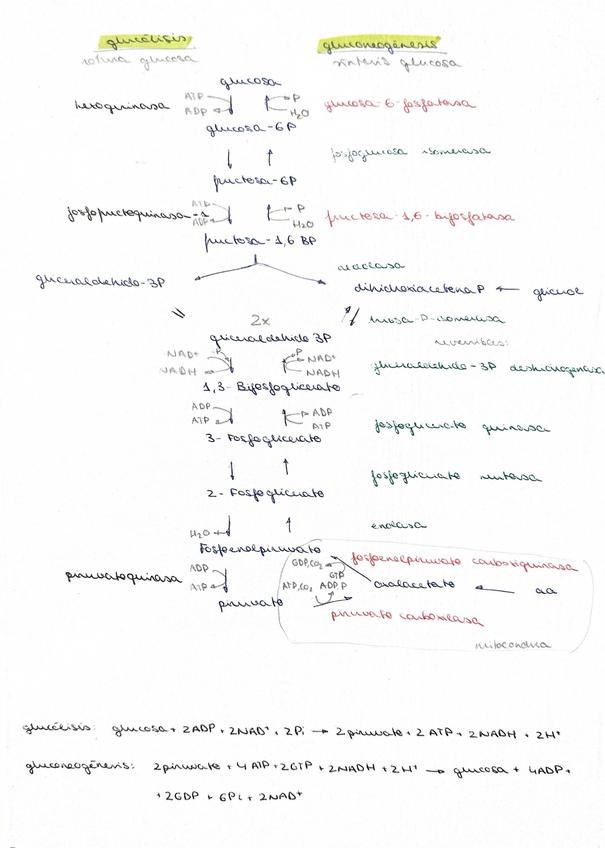 glucólisis gluconeogénesis
rotura glucosa síntesis glucosa
glucosa
hexoquinasa ATP ADP P H₂O glucosa-6-fosfatasa
glucosa-6P
fosfoglucosa isomerasa
fructosa-6P
fosfofructoquinasa-1 ATP ADP P H₂O fructosa-1,6-bifosfatasa
fructosa-1,6 BP
aldolasa
gliceraldehido-3P dihidroxiacetona P ← glicerol
2x triosa-P-isomerasa
gliceraldehido 3P reversibles:
NAD⁺ P NADH P NAD⁺ NADH gliceraldehido-3P deshidrogenasa
1,3-Bifosfoglicerato
ADP ATP ADP ATP fosfoglicerato quinasa
3-Fosfoglicerato
fosfoglicerato mutasa
2-Fosfoglicerato
H₂O enolasa
Fosfoenolpiruvato
GDP,CO₂ GTP fosfoenolpiruvato carboxiquinasa
piruvatoquinasa ADP ATP ATP,CO₂ ADP P oxalacetato ← aa
piruvato
piruvato carboxilasa
mitocondria
glucólisis: glucosa + 2ADP + 2NAD⁺ + 2Pi → 2piruvato + 2ATP + 2NADH + 2H⁺
gluconeogénesis: 2piruvato + 4ATP + 2GTP + 2NADH + 2H⁺ → glucosa + 4ADP +
+ 2GDP + 6Pi + 2NAD⁺